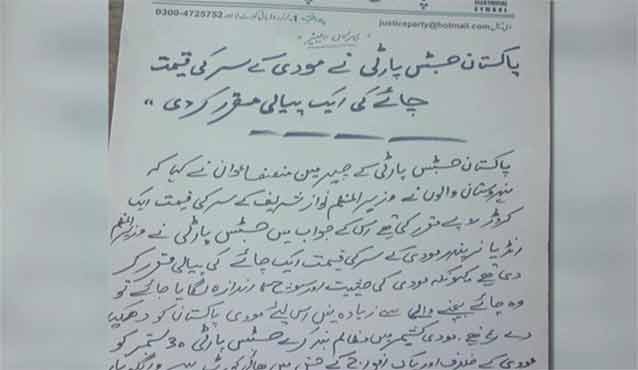 ELECTORAL
SYMBOL
0300-4725752
justiceparty@hotmail.com
پاکستان جسٹس پارٹی نے مودی کے سر کی قیمت
چائے کی ایک پیالی مقرر کر دی"
پاکستان جسٹس پارٹی کے چیئرمین منصف اعوان نے کہا کہ
ہندوستان والوں نے وزیراعظم نواز شریف کے سر کی قیمت ایک
کروڑ روپے مقرر کی ہے اس کے جواب میں جسٹس پارٹی نے وزیراعظم
انڈیا نریندر مودی کے سر کی قیمت ایک چائے کی پیالی مقرر کر
دی ہے کیونکہ مودی کی حیثیت اور سوچ کا اندازہ لگایا جائے تو
وہ چائے بیچنے والی سے زیادہ نہیں اس لیئے مودی پاکستان کو دھمکیاں
دے رہا ہے۔ مودی کشمیر میں مظالم بند کرے جسٹس پارٹی 30 ستمبر کو
مودی کے خلاف اور پاک افواج کے حق میں ہائی کورٹ سے